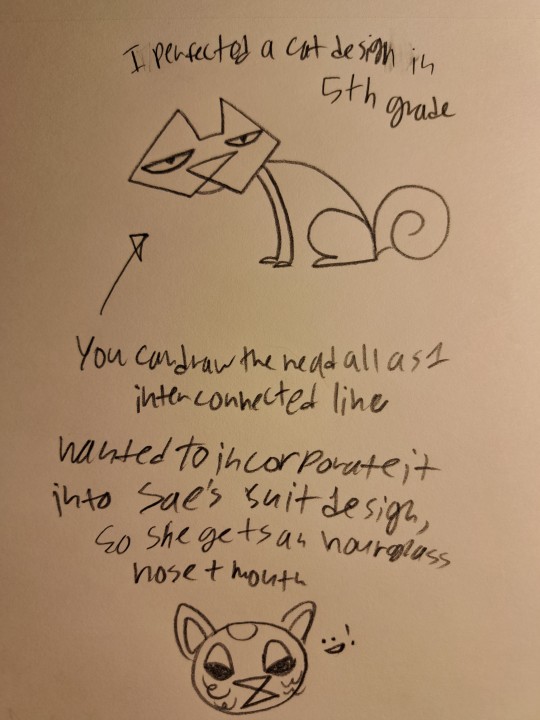 I perfected a cat design in
5th grade
You can draw the head all as 1
interconnected line
wanted to incorporate it
into Sae's suit design,
so she gets an hourglass
nose + mouth